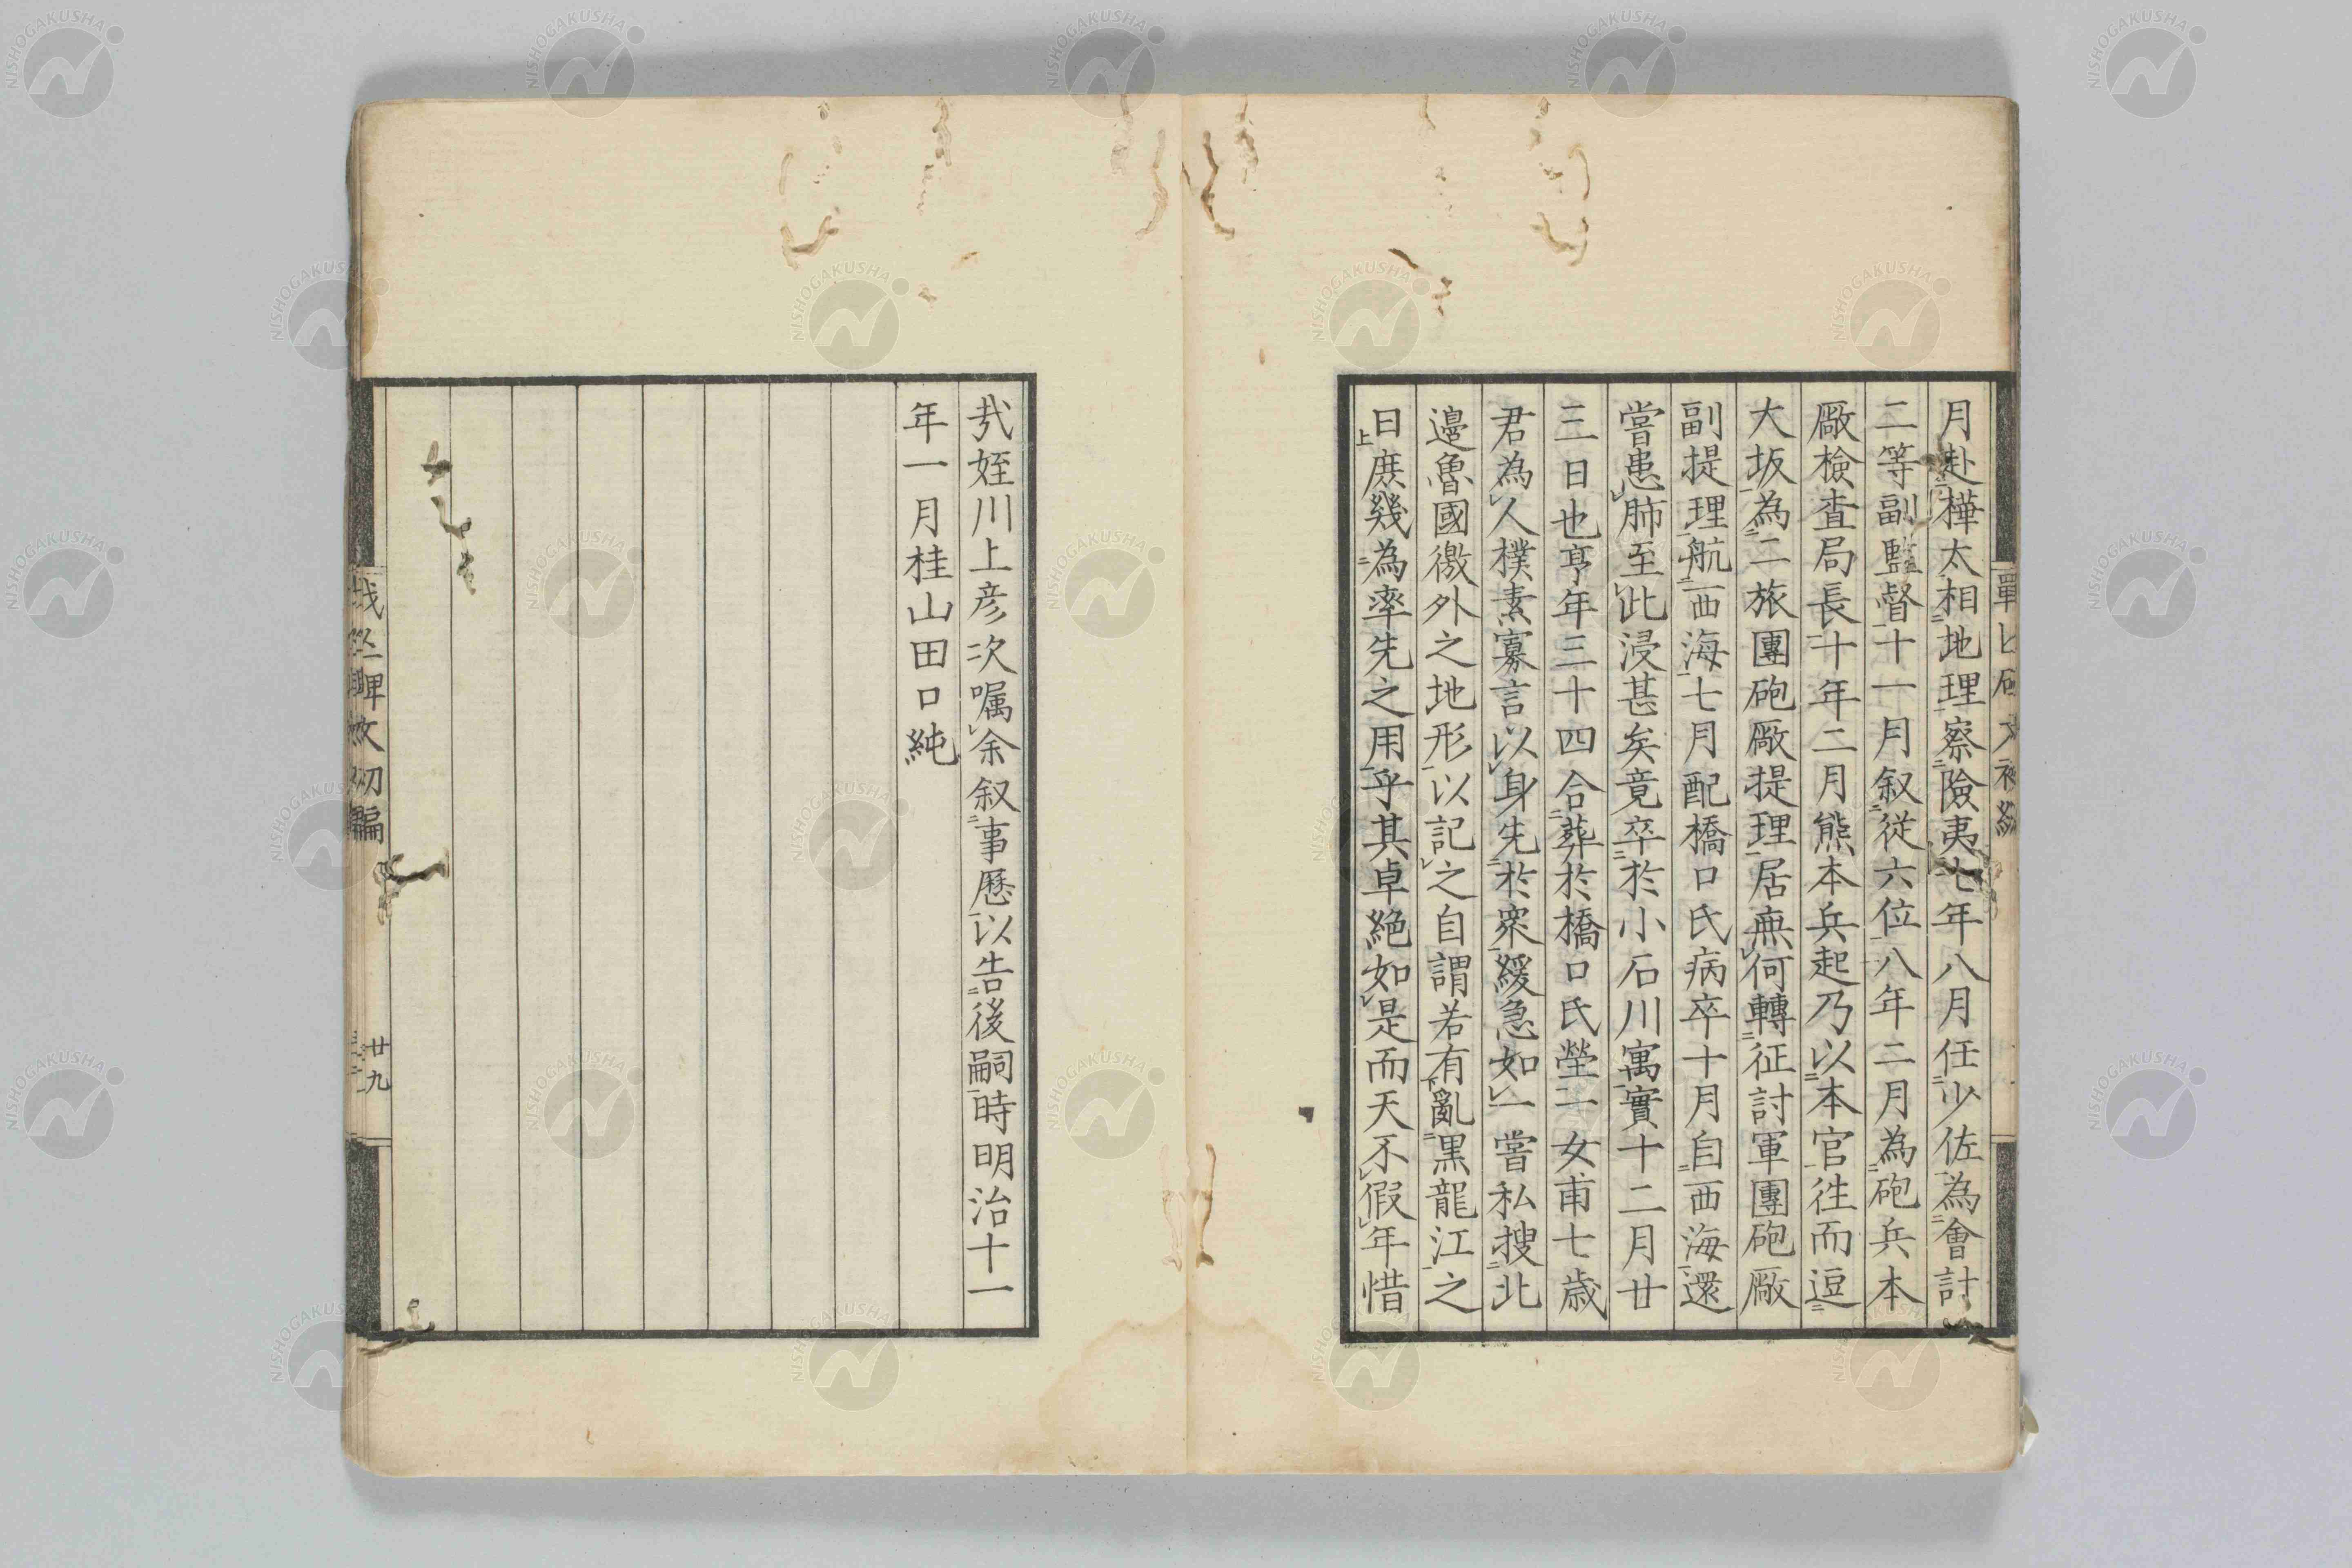 月赴樺太相地理察險夷七年八月任少佐為會計
二等副監督十一月叙從六位八年二月為砲兵本
廠檢査局長十年二月熊本兵起乃以本官徃而逗
大坂為二旅團砲廠提理居無何轉征討軍團砲廠
副提理航西海七月配橋口氏病卒十月自西海還
嘗患肺至此浸甚矣竟卒於小石川寓實十二月廿
三日也享年三十四合葬於橋口氏塋一女甫七歳
君為人樸素寡言以身先於衆緩急如一嘗私搜北
邊魯國徼外之地形以記之自謂若有亂黒龍江之
日庶幾為率先之用乎其卓絶如是而天不假年惜
㢤姪川上彦次嘱余叙事歴以告後嗣時明治十一
年一月桂山田口純
碑文初編
廿九
NISHOGAKUSHA